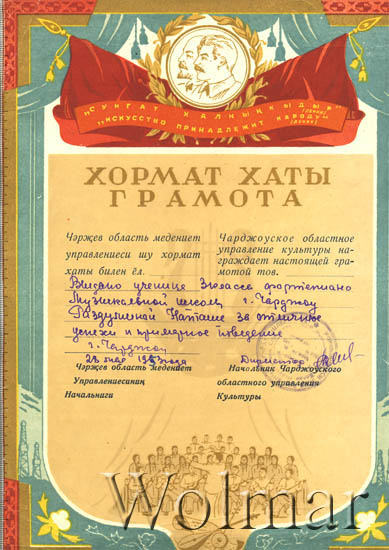 "СУНГАТ ХАЛКЫҢКЫДЫР"
(ЛЕНИН)
"ИСКУССТВО ПРИНАДЛЕЖИТ НАРОДУ"
(ЛЕНИН)
ХОРМАТ ХАТЫ
ГРАМОТА
Чәржев область медениет
управлениеси шу хормат
хаты билен ёл.
Чарджоуское областное
управление культуры на-
граждает настоящей гра-
мотой тов.
Выдано ученице 3 класса фортепиано
Музыкальной школы г. Чарджоу
Наташе за отличные
успехи и примерное поведение
г. Чарджоу
1953 года
Директор
Чәржев область медениет
Управлениесаниң
Началниги
Начальник Чарджоуского
областного управления
Культуры
Wolmar